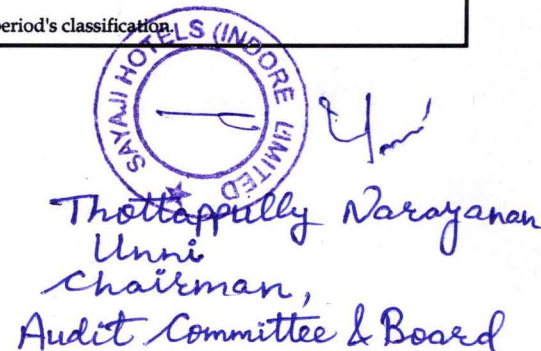 period's classification.
SAYAJI HOTELS (INDORE) LIMITED
Thottappully Narayanan
Unni
Chairman,
Audit Committee & Board